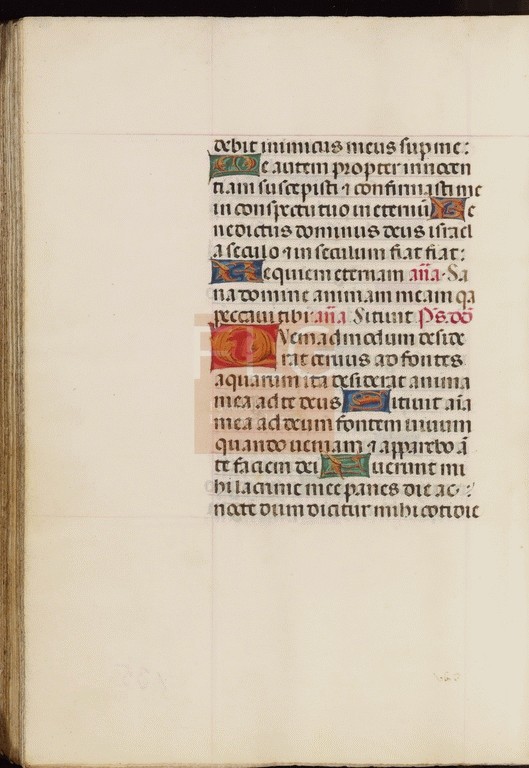 debit inimicus meus sup me:
Me autem propter innocen
tiam suscepisti ⁊ confirmasti me
in conspectu tuo in eternū Be
nedictus dominus deus israel
a seculo ⁊ in seculum fiat fiat:
Requiem eternam aña Sa
na domine animam meam qa
peccavi tibi aña Sitivit Ps. dd
Quemadmodum deside
rat cervus ad fontes
aquarum ita desiderat anima
mea ad te deus Sitivit aīa
mea ad deum fontem vivum
quando veniam ⁊ apparebo ā
te faciem dei Fuerunt mi
hi lacrime mee panes die ac
nocte dum dicitur mihi cotidie